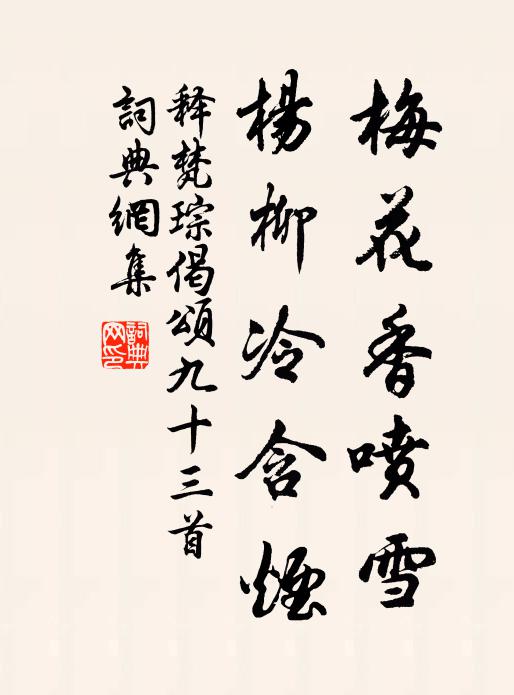 梅花香喷雪
楊柳冷含煙
释梵琮偈頌九十三首
詞典網集
詞典網印